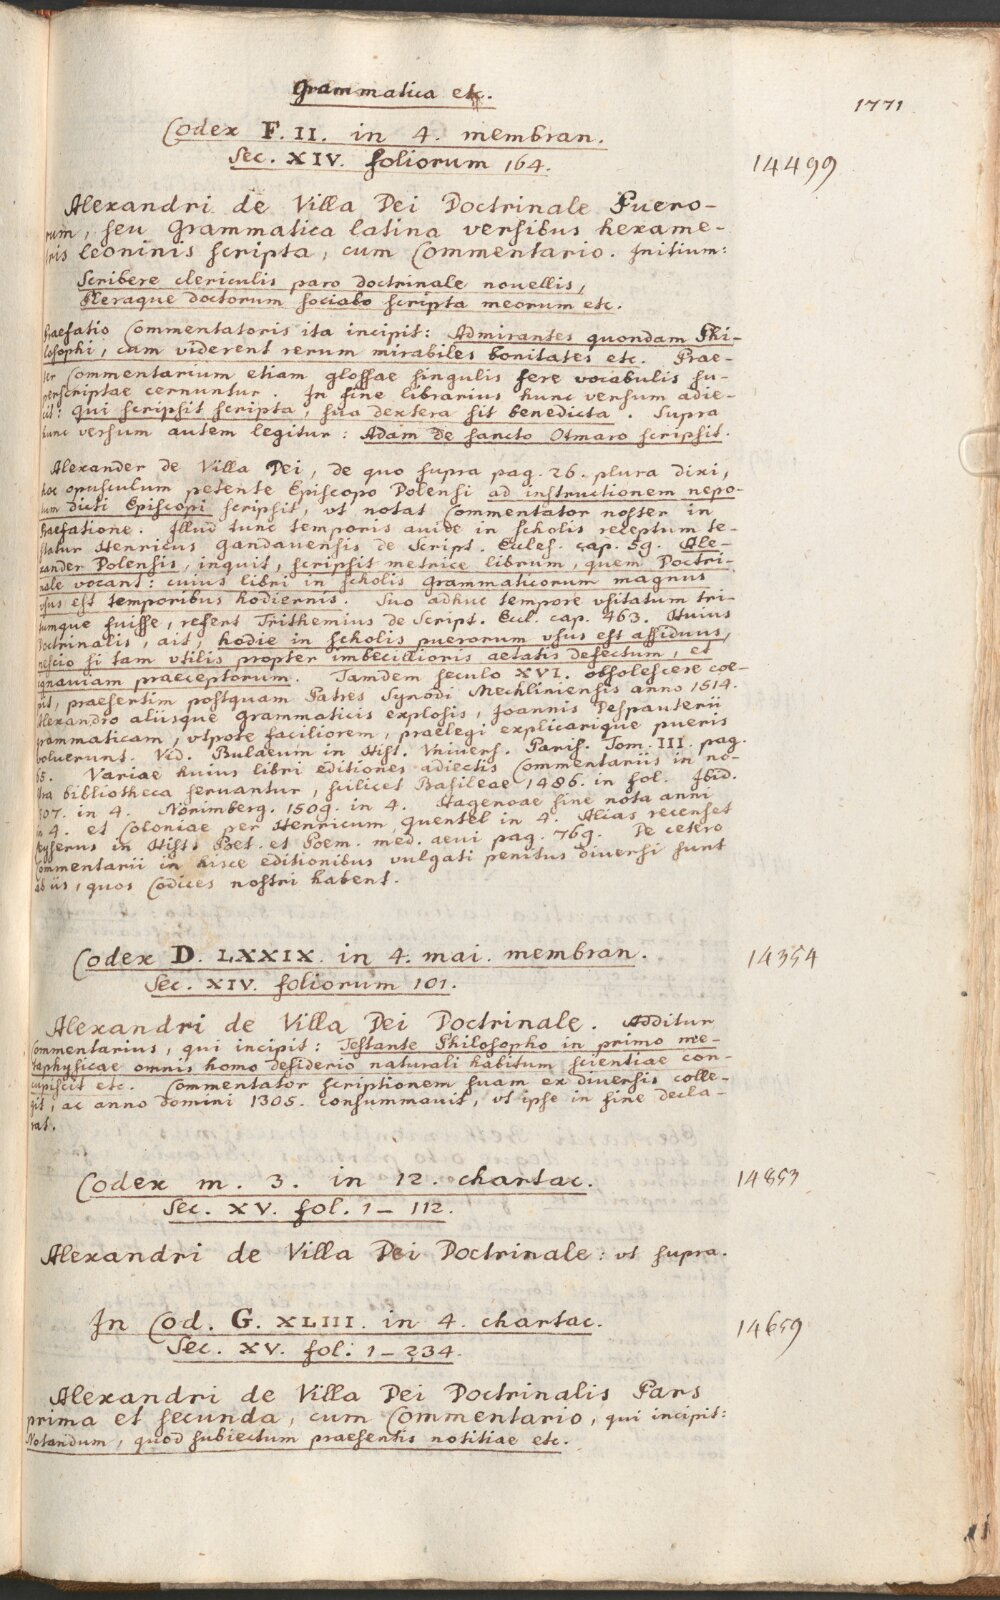 Grammatica etc.
1771
Codex F. II. in 4. membran.
Sec. XIV. foliorum 164.
14499
Alexandri de Villa Dei Doctrinale Puero-
rum, seu Grammatica latina versibus hexame-
tris leoninis scripta, cum Commentario. Initium:
Scribere clericulis paro doctrinale novellis,
Pleraque doctorum sociabo scripta meorum etc.
Praefatio Commentatoris ita incipit: Admirantes quondam Phi-
losophi, cum viderent rerum mirabiles bonitates etc. Prae-
ter Commentarium etiam glossae singulis fere vocabulis su-
perscriptae cernuntur. In fine librarius hunc versum adie-
cit: Qui scripsit scripta, sua dextera sit benedicta. Supra
hunc versum autem legitur: Adam de sancto Otmaro scripsit.
Alexander de Villa Dei, de quo supra pag. 26. plura dixi,
hoc opusculum petente Episcopo Dolensi ad instructionem nepo-
tum dicti Episcopi scripsit, vt notat Commentator noster in
Praefatione. Illud tunc temporis auide in scholis receptum te-
statur Henricus Gandauensis de Script. Eccles. cap. 59. Ale-
xander Dolensis, inquit, scripsit metrice librum, quem Doctri-
nale vocant: cuius libri in scholis grammaticorum magnus
vsus est temporibus hodiernis. Suo adhuc tempore vsitatum tri-
tumque fuisse, refert Trithemius de Script. Eccl. cap. 463. Huius
Doctrinalis, ait, hodie in scholis puerorum vsus est assiduus,
nescio si tam vtilis propter imbecillioris aetatis defectum, et
ignauiam praeceptorum. Tamdem seculo XVI. obsolescere coe-
pit, praesertim postquam Patres Synodi Mechliniensis anno 1514.
Alexandro aliisque Grammaticis explosis, Joannis Despauterii
grammaticam, vtpote faciliorem, praelegi explicarique pueris
voluerunt. Vid. Bulaeum in Hist. Vniuers. Paris. Tom. III. pag.
65. Variae huius libri editiones adiectis Commentariis in no-
stra bibliotheca seruantur, scilicet Basileae 1486. in fol. Ibid.
307. in 4. Norimberg. 1509. in 4. Hagenoae sine nota anni
in 4. et Coloniae per Henricum Quentel in 4. Alias recenset
Leyserus in Hist. Poet. et Poem. med. aeui pag. 769. De cetero
Commentarii in hisce editionibus vulgati penitus diuersi sunt
ab iis, quos Codices nostri habent.
Codex D. LXXIX. in 4. mai. membran.
Sec. XIV. foliorum 101.
14354
Alexandri de Villa Dei Doctrinale. Additur
Commentarius, qui incipit: Testante Philosopho in primo me-
taphysicae omnis homo desiderio naturali habitum scientiae con-
cupiscit etc. Commentator scriptionem suam ex diuersis colle-
git, ac anno Domini 1305. consummauit, vt ipse in fine decla-
rat.
Codex m. 3. in 12. chartac.
Sec. XV. fol. 1 – 112.
14853
Alexandri de Villa Dei Doctrinale: vt supra.
In Cod. G. XLIII. in 4. chartac.
Sec. XV. fol: 1 – 234.
14659
Alexandri de Villa Dei Doctrinalis Pars
prima et secunda, cum Commentario, qui incipit:
Notandum, quod subiectum praesentis notitiae etc.